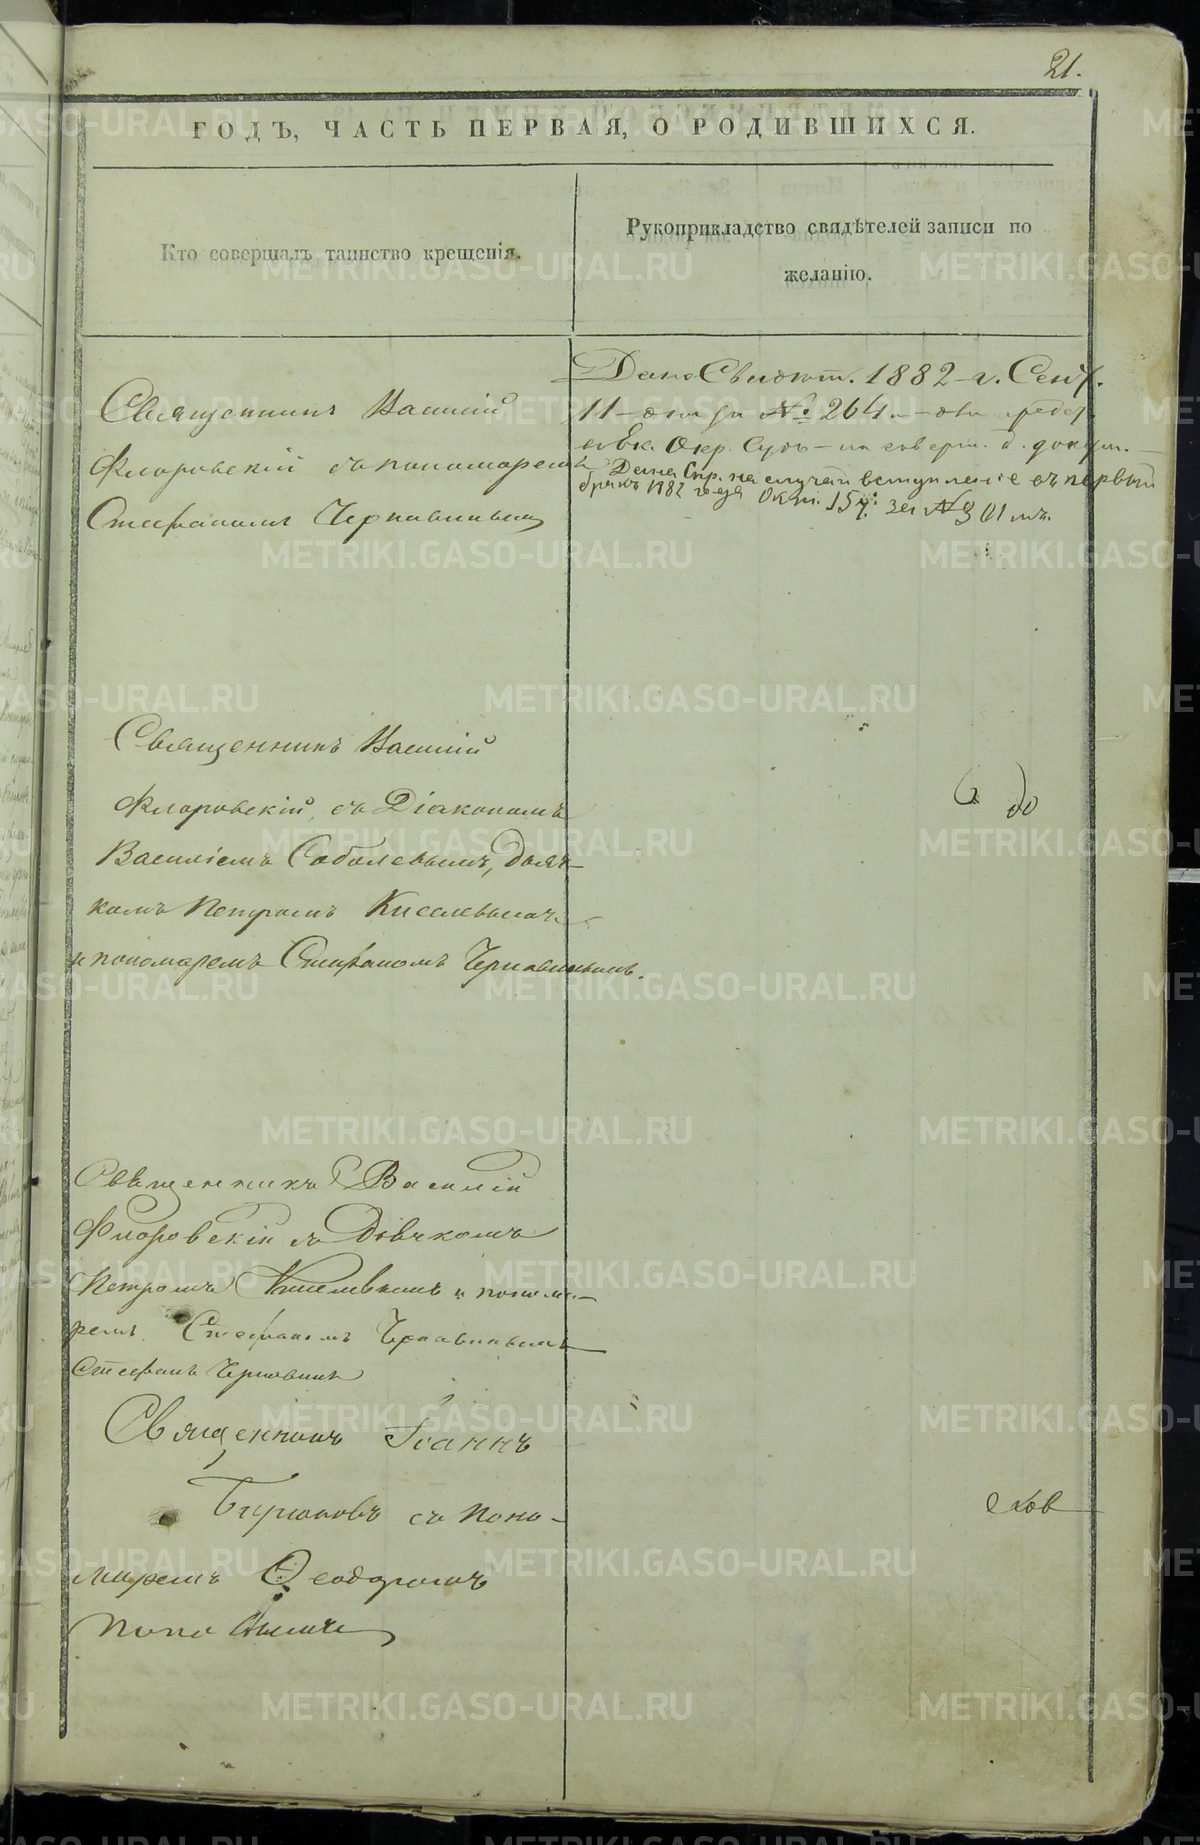 21.
ГОДЪ, ЧАСТЬ ПЕРВАЯ, О РОДИВШИХСЯ.
Кто совершалъ таинство крещенія.
Рукоприкладство свидѣтелей записи по
желанію.
Священникъ Василій
Флоровскій съ пономаремъ
Стефаномъ Чернавинымъ
Дано Свидѣт. 1882 г. Сент.
11 - дня за № 264
въ Ек. Окр. Судъ - на соверш. д. докум.
Дана Спр. на случай вступленіе въ первый
бракъ 1882 года Окт. 15 ч. за № 301 мъ.
Священникъ Василій
Флоровскій, съ Діакономъ
Василіемъ Соболевымъ, дьяч-
комъ Петромъ Киселевымъ
и пономаремъ Стефаномъ Чернавинымъ.
Священникъ Василій
Флоровскій съ Дьячкомъ
Петромъ Киселевымъ и понома-
ремъ Стефаномъ Чернавинымъ
Стефанъ Чернавинъ
Священникъ Іоаннъ
Бирюковъ съ Поно-
маремъ Ѳеодоромъ
Поповымъ
ков
METRIKI.GASO-URAL.RU